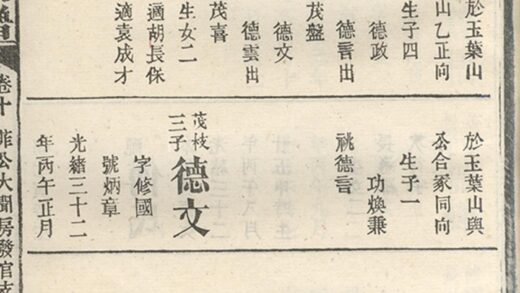 於玉葉山
山乙正向
生子四
德政
德言出
茂盤
德文
德雲出
茂喜
生女二
適胡長保
適袁成才
於玉葉山與
公合冢同向
生子一
功煥秉
祧德言
茂枝
三子
德文
字修國
號炳章
光緒三十二
年丙午正月
卷十
公大開房發官支